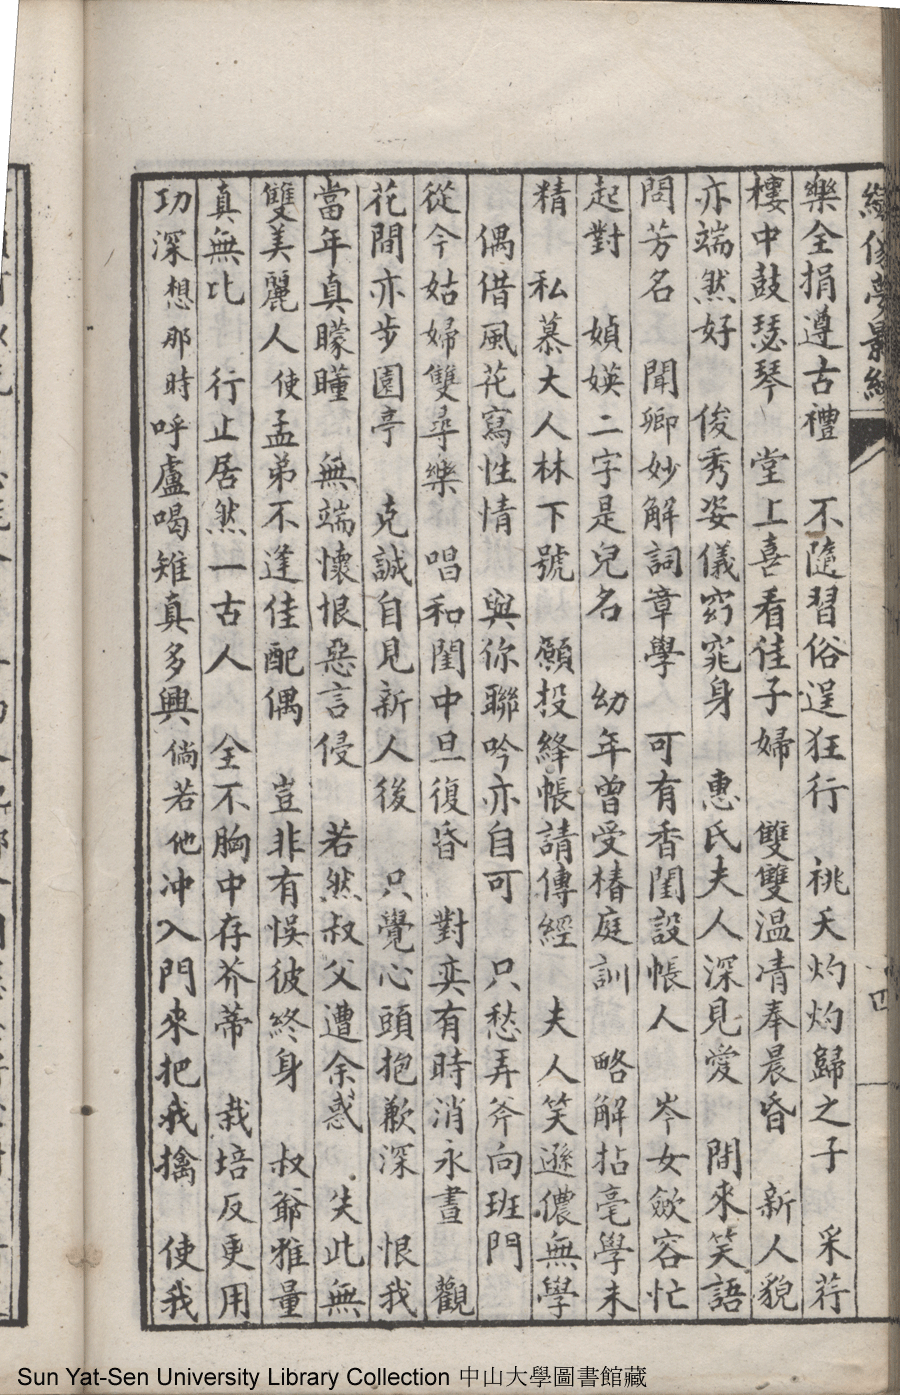 繡像夢影緣
四
樂全捐遵古禮　不隨習俗逞狂行　祧夭灼灼歸之子　采荇
樓中鼓瑟琴　堂上喜看佳子婦　雙雙温凊奉晨昏　新人貌
亦端然好　俊秀姿儀窈窕身　惠氏夫人深見愛　閒來笑語
問芳名　聞卿妙解詞章學　可有香閨設帳人　岑女歛容忙
起對　媜媖二字是兒名　幼年曾受椿庭訓　略解拈毫學未
精　私慕大人林下號　願投絳帳請傳經　夫人笑遜儂無學
偶借風花寫性情　與你聯吟亦自可　只愁弄斧向班門
從今姑婦雙尋樂　唱和閨中旦復昏　對奕有時消永晝　觀
花間亦步園亭　克誠自見新人後　只覺心頭抱歉深　恨我
當年真矇瞳　無端懷恨惡言侵　若然叔父遭余惑　失此無
雙美麗人　使孟弟不逢佳配偶　豈非有悞彼終身　叔爺雅量
真無比　行止居然一古人　全不胸中存芥蒂　栽培反更用
功深　想那時呼盧喝雉真多興　倘若他冲入門來把我擒　使我
Sun Yat-Sen University Library Collection 中山大學圖書館藏